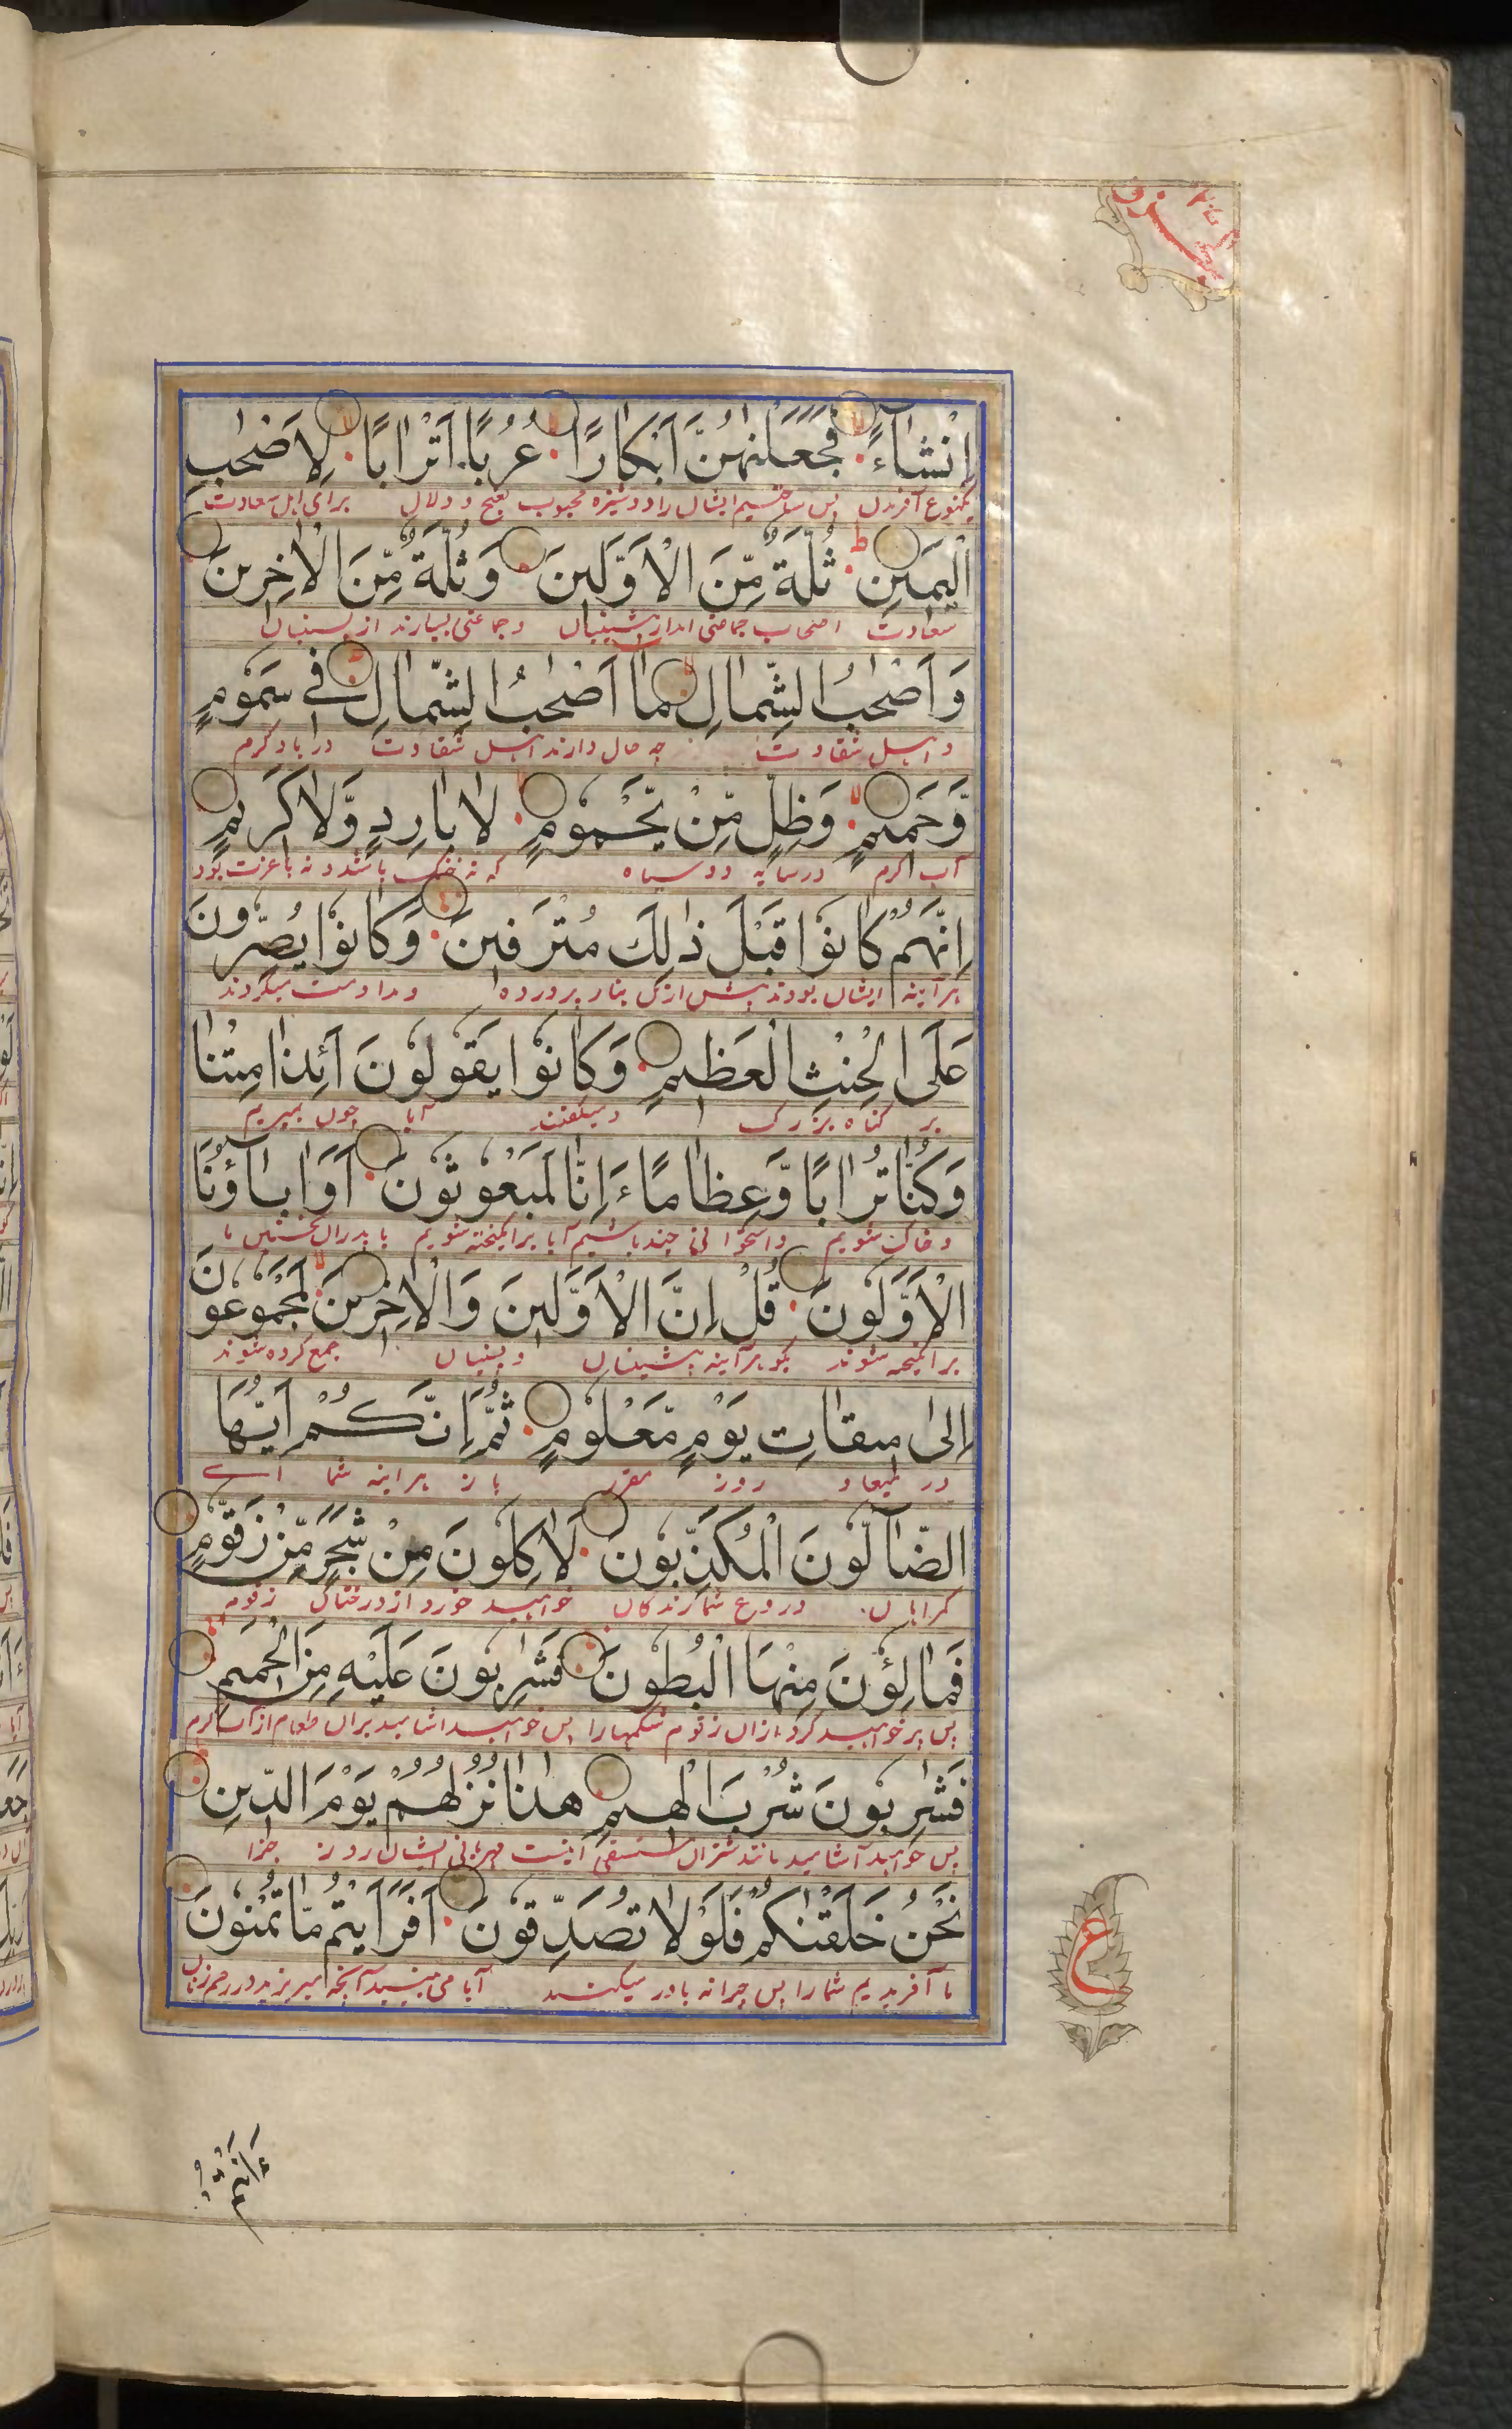 اِنْشَاءً فَجَعَلْنٰهُنَّ اَبْكَارًا عُرُبًا اَتْرَابًا لِاَصْحٰبِ
یکنوع آفریدن پس ساختیم ایشان را دوشیزه محبوب بغنج و دلال برای اهل سعادت
الْيَمِيْنِ ثُلَّةٌ مِّنَ الْاَوَّلِيْنَ وَثُلَّةٌ مِّنَ الْاٰخِرِيْنَ
سعادت اصحاب جماعتی اند از پیشینیان و جماعتی بسیارند از پسینیان
وَاَصْحٰبُ الشِّمَالِ مَا اَصْحٰبُ الشِّمَالِ فِي سَمُوْمٍ
و اهل شقاوت چه حال دارند اهل شقاوت در باد گرم
وَّحَمِيْمٍ وَظِلٍّ مِّنْ يَّحْمُوْمٍ لَا بَارِدٍ وَّلَا كَرِيْمٍ
آب گرم در سایه دود سیاه که نه خنک باشد و نه با عزت بود
اِنَّهُمْ كَانُوْا قَبْلَ ذٰلِكَ مُتْرَفِيْنَ وَكَانُوْا يُصِرُّوْنَ
هر آینه ایشان بودند پیش ازین بناز پرورده و مداومت میکردند
عَلَى الْحِنْثِ الْعَظِيْمِ وَكَانُوْا يَقُوْلُوْنَ اَئِذَا مِتْنَا
بر گناه بزرگ و میگفتند آیا چون بمیریم
وَكُنَّا تُرَابًا وَّعِظَامًا ءَاِنَّا لَمَبْعُوْثُوْنَ اَوَاٰبَاؤُنَا
و خاک شویم و استخوانی چند باشیم آیا برانگیخته شویم یا پدران نخستین ما
الْاَوَّلُوْنَ قُلْ اِنَّ الْاَوَّلِيْنَ وَالْاٰخِرِيْنَ لَمَجْمُوْعُوْنَ
برانگیخته شوند بگو هر آینه پیشینیان و پسینیان جمع کرده شوند
اِلٰى مِيْقَاتِ يَوْمٍ مَّعْلُوْمٍ ثُمَّ اِنَّكُمْ اَيُّهَا
در میعاد روز مقرر باز هر آینه شما ای
الضَّآلُّوْنَ الْمُكَذِّبُوْنَ لَاٰكِلُوْنَ مِنْ شَجَرٍ مِّنْ زَقُّوْمٍ
گمراهان دروغ شمارندگان خواهید خورد از درختان زقوم
فَمَالِؤُنَ مِنْهَا الْبُطُوْنَ فَشٰرِبُوْنَ عَلَيْهِ مِنَ الْحَمِيْمِ
پس پر خواهید کرد ازان زقوم شکمها را پس خواهید آشامید بران طعام از آب گرم
فَشٰرِبُوْنَ شُرْبَ الْهِيْمِ هٰذَا نُزُلُهُمْ يَوْمَ الدِّيْنِ
پس خواهید آشامید مانند شتران مستسقی اینست مهمانی ایشان روز جزا
نَحْنُ خَلَقْنٰكُمْ فَلَوْلَا تُصَدِّقُوْنَ اَفَرَاَيْتُمْ مَّا تُمْنُوْنَ
ما آفریدیم شما را پس چرا نه باور میکنید آیا می بینید آنچه میریزید در رحم زنان
ع
ءَاَنْتُمْ